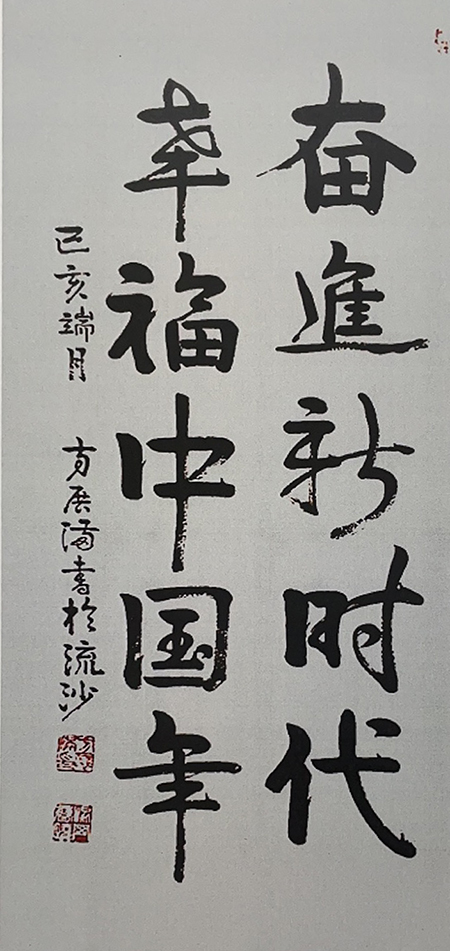 奋進新时代
幸福中国年
己亥端月 方展满書於流沙